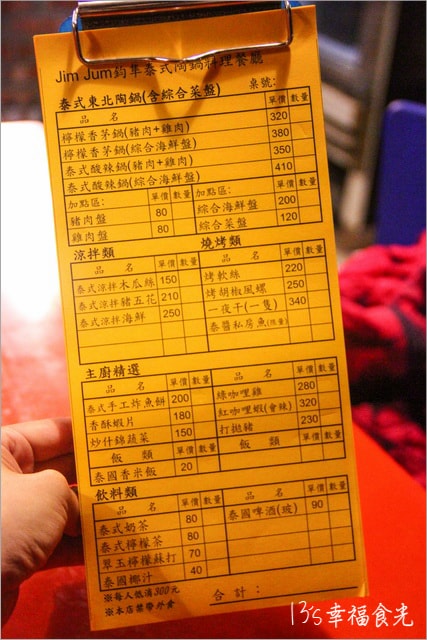 Jim Jum鈞隼泰式陶鍋料理餐廳
泰式東北陶鍋(含綜合菜盤) 桌號:
品 名 單價 數量
檸檬香茅鍋(豬肉+雞肉) 320
檸檬香茅鍋(綜合海鮮盤) 380
泰式酸辣鍋(豬肉+雞肉) 350
泰式酸辣鍋(綜合海鮮盤) 410
加點區: 單價 數量 加點區: 單價 數量
豬肉盤 80 綜合海鮮盤 200
雞肉盤 80 綜合菜盤 120
涼拌類 燒烤類
品 名 單價 數量 品 名 單價 數量
泰式涼拌木瓜絲 150 烤軟絲 220
泰式涼拌豬五花 210 烤胡椒風螺 250
泰式涼拌海鮮 250 一夜干(一隻) 340
泰醬私房魚(限量)
主廚精選
品 名 單價 數量 品 名 單價 數量
泰式手工炸魚餅 200 綠咖哩雞 280
香酥蝦片 180 紅咖哩蝦(會辣) 320
炒什錦蔬菜 150 打拋豬 230
飯 類 單價 數量 飯 類 單價 數量
泰國香米飯 20
飲料類
品 名 單價 數量 品 名 單價 數量
泰式奶茶 80 泰國啤酒(玻) 90
泰式檸檬茶 80
翠玉檸檬蘇打 70
泰國椰汁 40
※每人低消300元
※本店禁帶外食 合計:
13's幸福食光